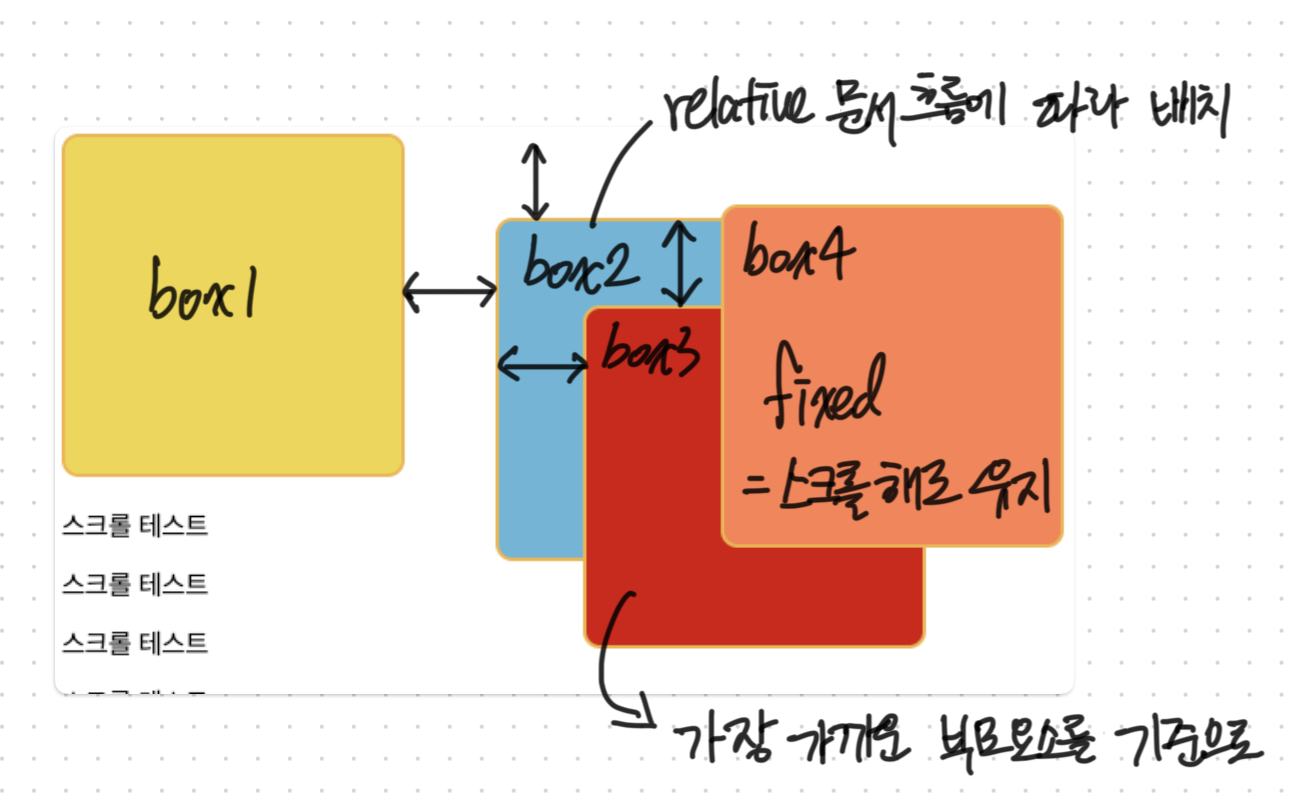 relative 문서흐름에 따라 배치
box1
box2
box4
box3
fixed
= 스크롤해도 유지
스크롤 테스트
스크롤 테스트
스크롤 테스트
스크롤 테스트
가장 가까운 부모요소를 기준으로